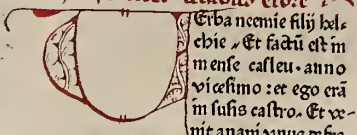 Erba neemie filij hel⸗
chie. Et factū est in
mense casleu. anno
vicesimo: et ego erā
in susis castro. Et ve⸗
nit anani vnus